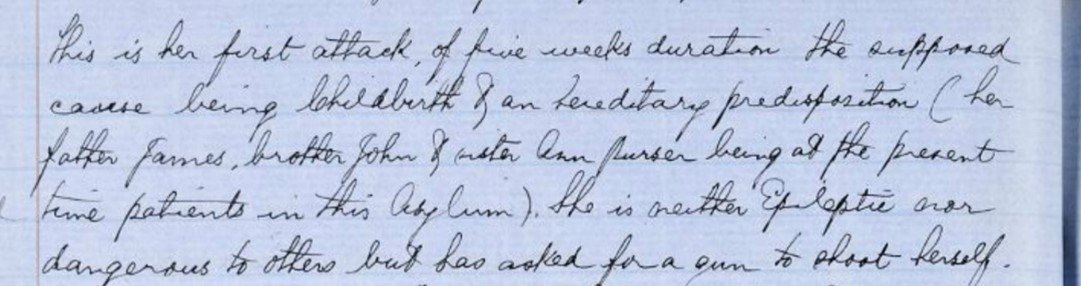 This is her first attack, of five weeks duration the supposed
cause being Childbirth & an hereditary predisposition (her
father James, brother John & sister Ann Purser being at the present
time patients in this Asylum). She is neither Epileptic nor
dangerous to others but has asked for a gun to shoot herself.